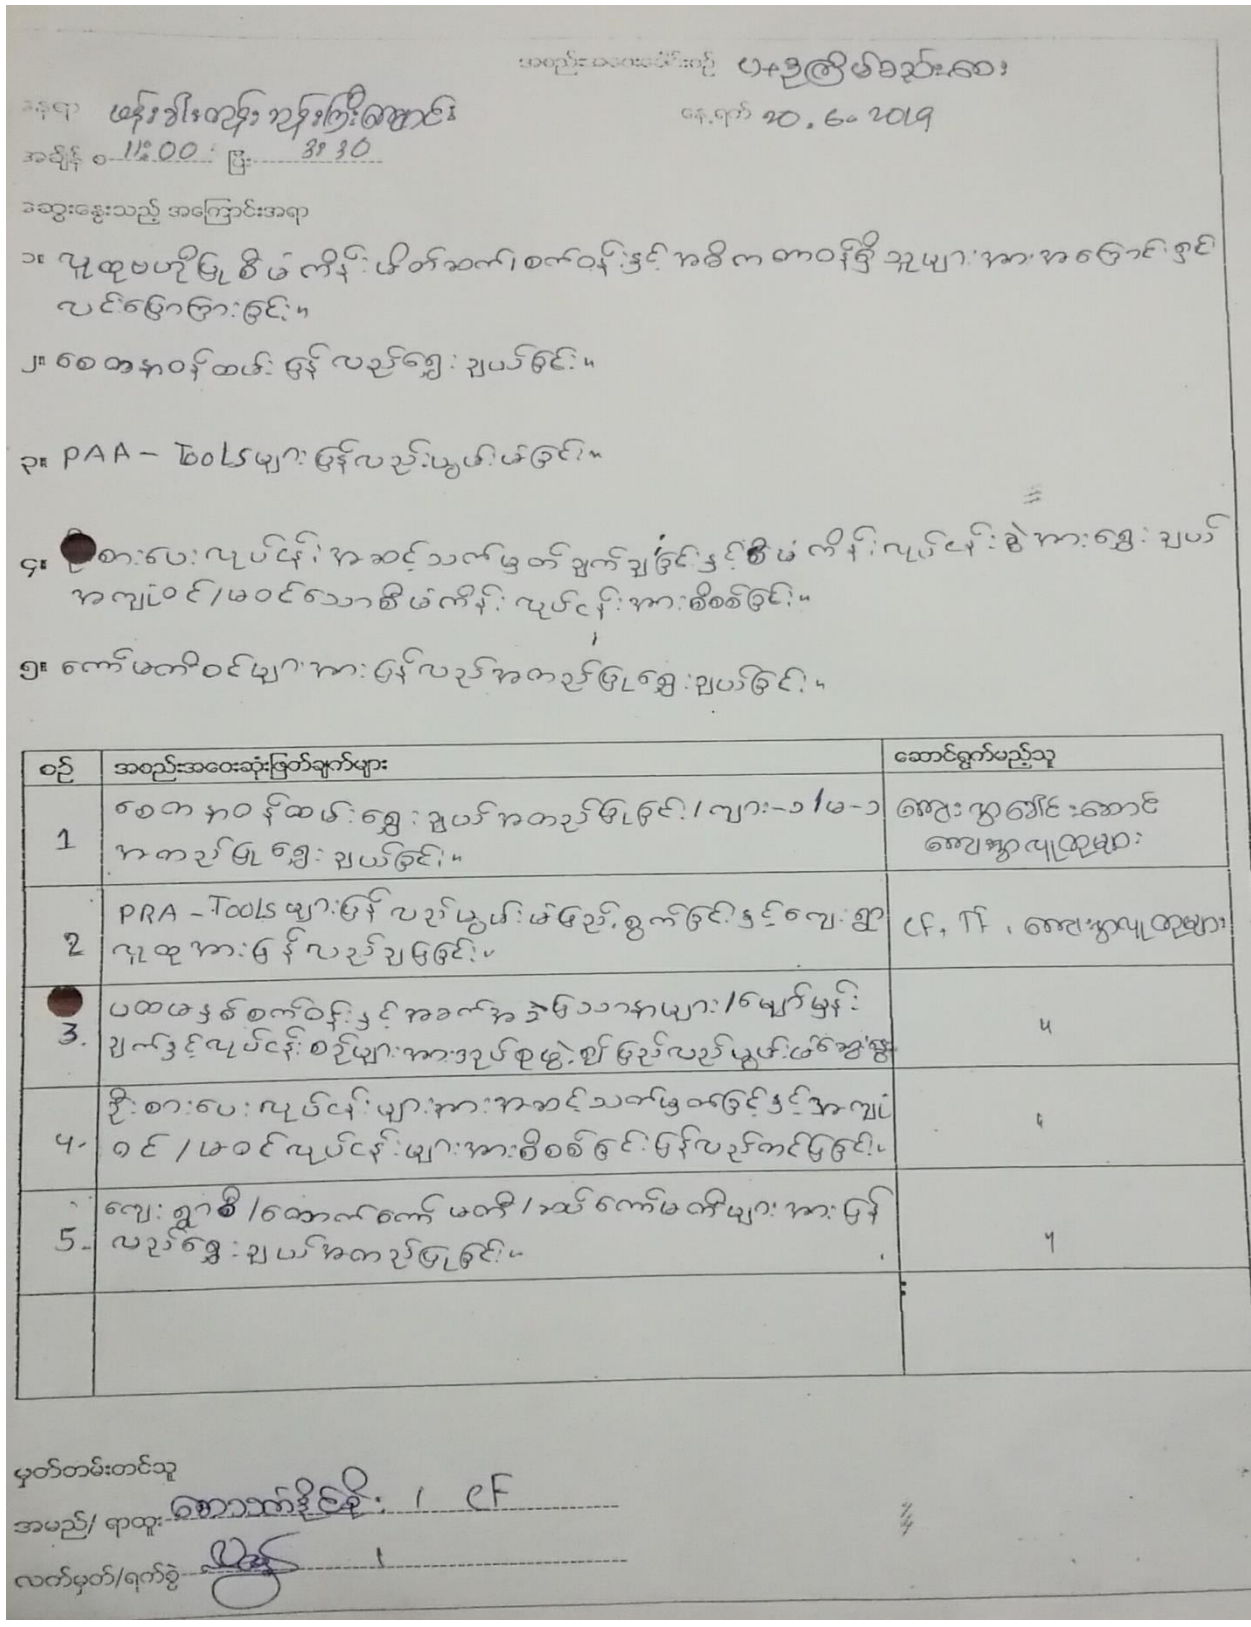 အစည်းအဝေးခေါင်းစဉ် ပ+ဒုကြိမ်စည်းဝေး
နေရာ ဖန်ခါးကုန်းဘုန်းကြီးကျောင်း နေ့ရက် 20.6.2019
အချိန် စ 11:00 ပြီး 3:30
ဆွေးနွေးသည့် အကြောင်းအရာ
၁။ လူထုဗဟိုပြုစီမံကိန်း မိတ်ဆက်၊ စက်ဝန်းနှင့် အဓိကတာဝန်ရှိသူများအား အကြောင်းရှင်း
လင်းပြောကြားခြင်း။
၂။ စေတနာ့ဝန်ထမ်း ပြန်လည်ရွေးချယ်ခြင်း။
၃။ PAA - Toolsများပြန်လည်းယွမ်းမံခြင်း။
၄။ ဦးစားပေးလုပ်ငန်း အဆင့်သတ်မှတ်ချက်ချခြင်းနှင့် စီမံကိန်းလုပ်ငန်းခွဲအား ရွေးချယ်
အကျုံးဝင်/မဝင်သောစီမံကိန်း လုပ်ငန်းအားစိစစ်ခြင်း။
၅။ ကော်မတီဝင်များအား ပြန်လည်အတည်ပြုရွေးချယ်ခြင်း။
စဉ် အစည်းအဝေးဆုံးဖြတ်ချက်များ ဆောင်ရွက်မည့်သူ
1 စေတနာ့ဝန်ထမ်းရွေးချယ်အတည်ပြုခြင်း/ကျား-၁/မ-၁ ကျေးရွာခေါင်းဆောင်
အတည်ပြုရွေးချယ်ခြင်း။ ကျေးရွာလူထုများ
2 PRA - Tools များပြန်လည်ယွမ်းမံဖြည့်စွက်ခြင်းနှင့်ကျေးရွာ CF, TF, ကျေးရွာလူထုများ
လူထုအားပြန်လည်ချပြခြင်း။
3. ပထမနှစ်စက်ဝန်းနှင့်အခက်အခဲပြဿနာများ/မျှော်မှန်း "
ချက်နှင့်လုပ်ငန်းစဉ်များအားအုပ်စုဖွဲ့၍ပြည်လည်ယွမ်းမံဆွေးနွေး
4. ဦးစားပေးလုပ်ငန်းများအားအဆင့်သတ်မှတ်ခြင်းနှင့်အကျုံး "
ဝင်/မဝင်လုပ်ငန်းများအားစိစစ်ခြင်းပြန်လည်တင်ပြခြင်း။
5. ကျေးရွာစီ/ထောက်ကော်မတီ/ဆပ်ကော်မတီများအားပြန် "
လည်ရွေးချယ်အတည်ပြုခြင်း။
မှတ်တမ်းတင်သူ
အမည်/ ရာထူး / CF
လက်မှတ်/ရက်စွဲ